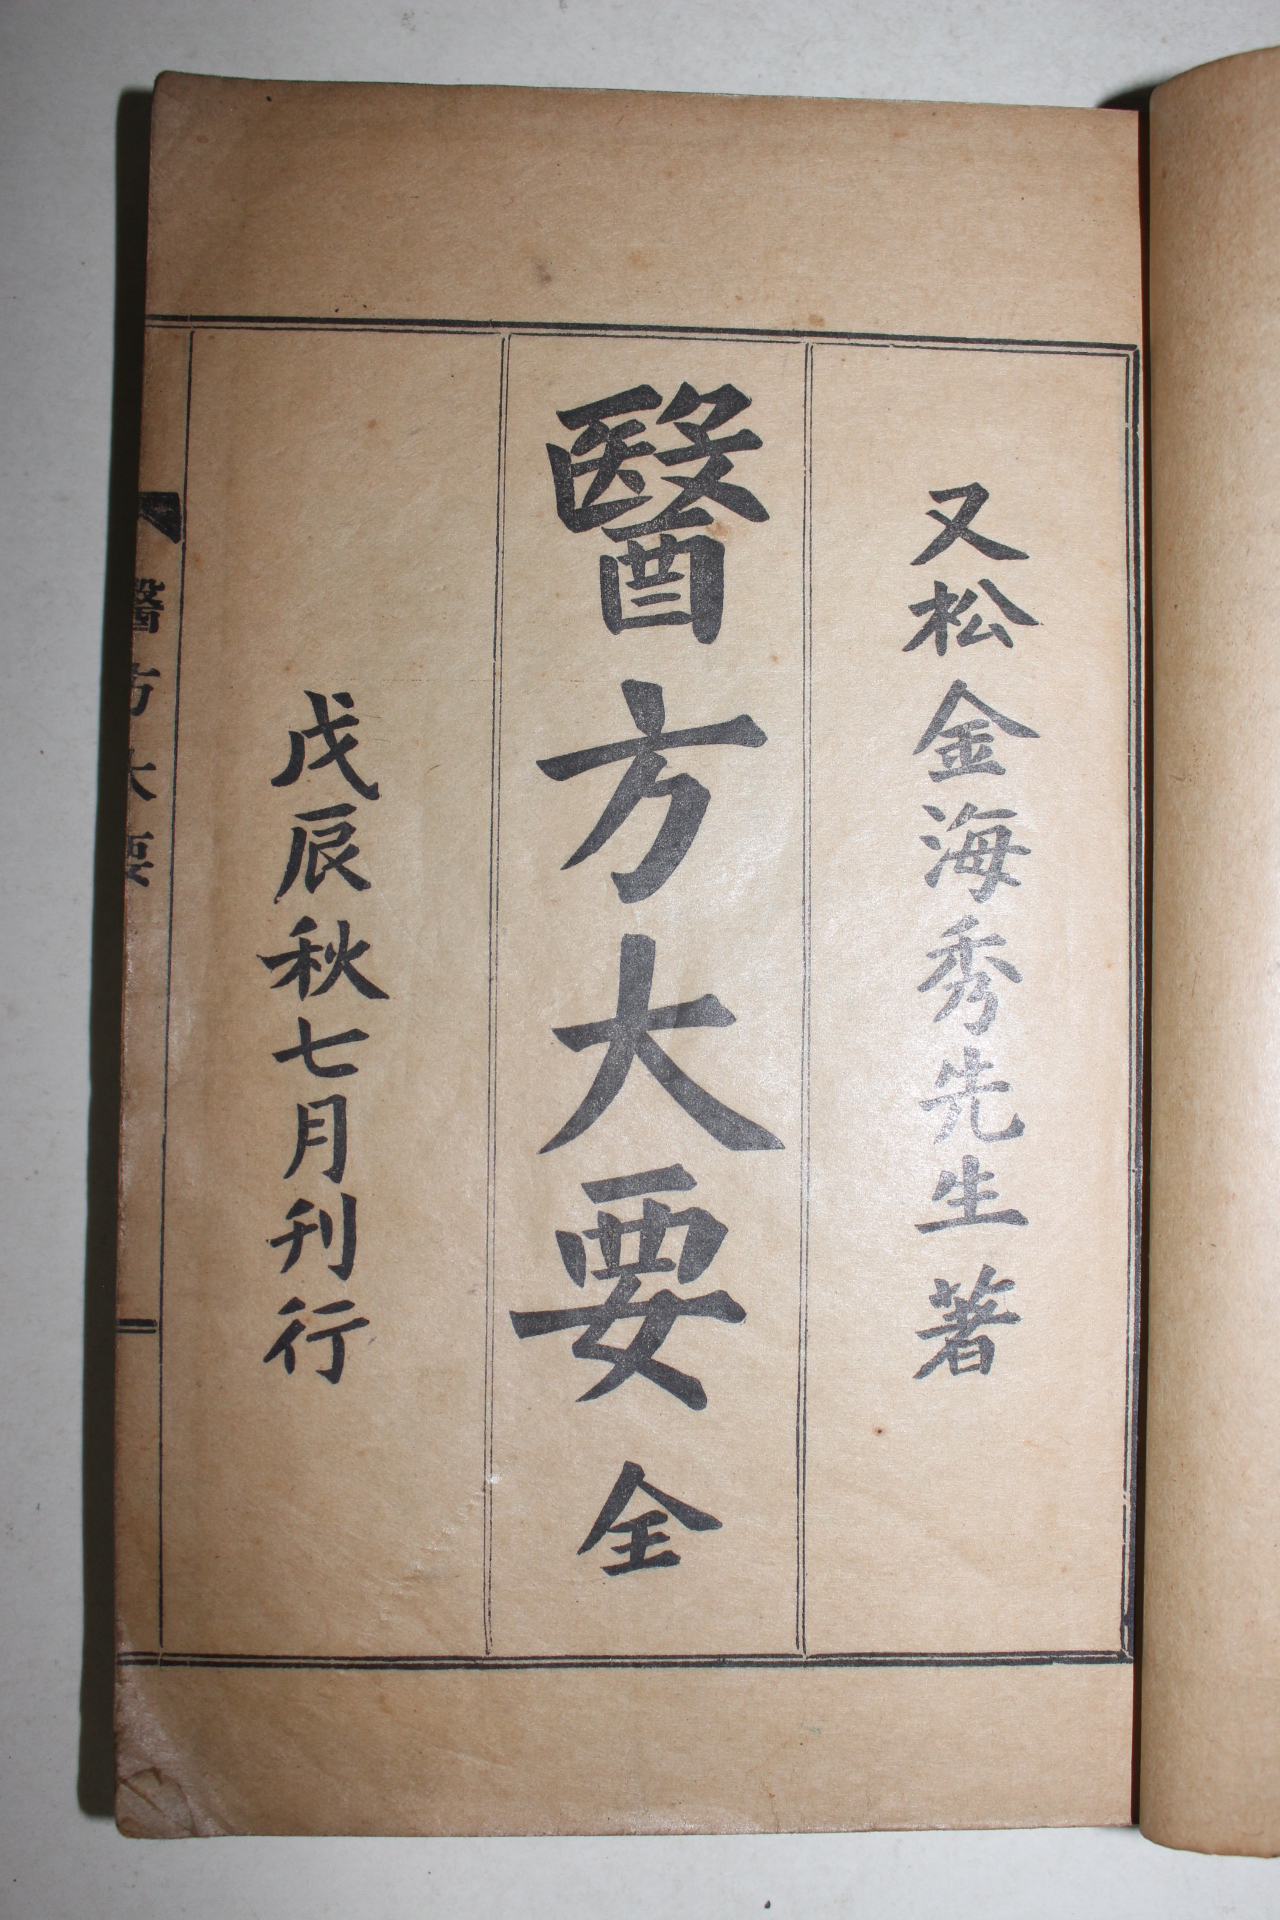 又松金海秀先生著
醫方大要全
戊辰秋七月刊行
醫方大要